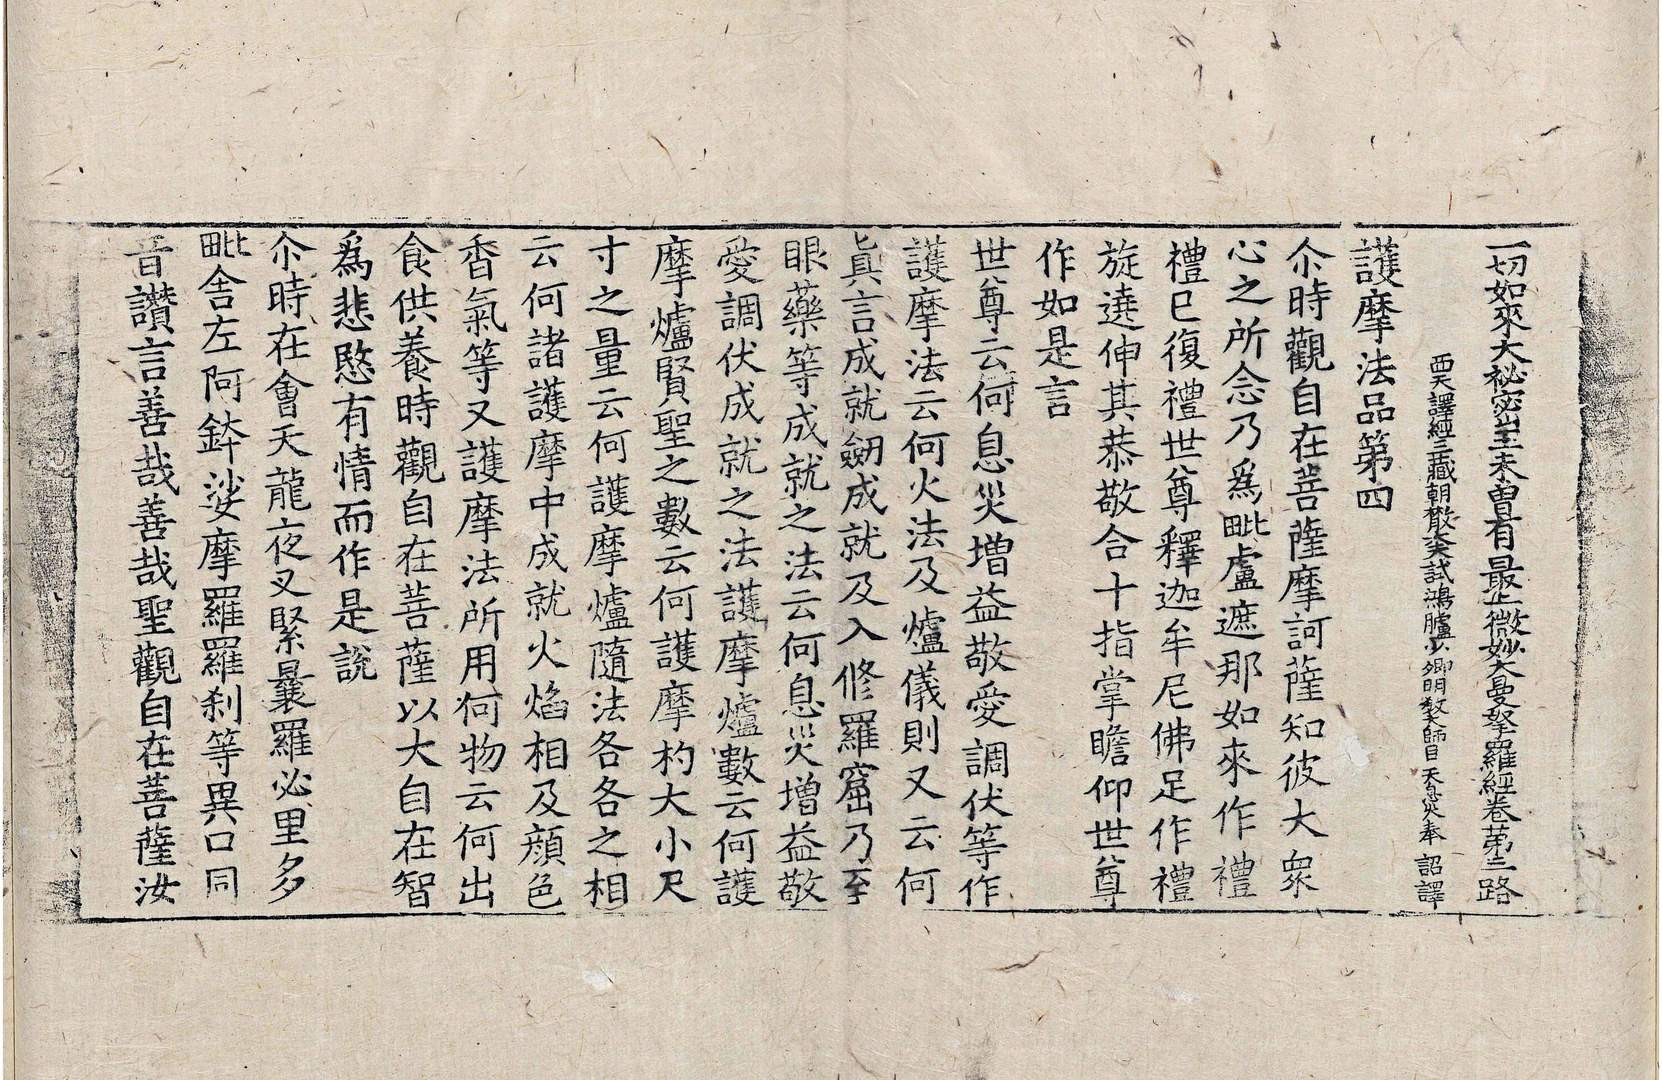 一切如來大祕密王未曾有最上微妙大曼拏羅經卷第三 路
西天譯經三藏朝散大夫試鴻臚少卿明教大師臣天息災奉 詔譯
護摩法品第四
尒時觀自在菩薩摩訶薩知彼大衆
心之所念乃爲毗盧遮那如來作禮
禮已復禮世尊釋迦牟尼佛足作禮
旋遶伸其恭敬合十指掌瞻仰世尊
作如是言
世尊云何息災增益敬愛調伏等作
護摩法云何火法及爐儀則又云何
眞言成就劒成就及入修羅窟乃至
眼藥等成就之法云何息災增益敬
愛調伏成就之法護摩爐數云何護
摩爐賢聖之數云何護摩杓大小尺
寸之量云何護摩爐隨法各各之相
云何諸護摩中成就火焰相及顔色
香氣等又護摩法所用何物云何出
食供養時觀自在菩薩以大自在智
爲悲愍有情而作是說
尒時在會天龍夜叉緊曩羅必里多
毗舍左阿鉢娑摩羅羅刹等異口同
音讚言善哉善哉聖觀自在菩薩汝